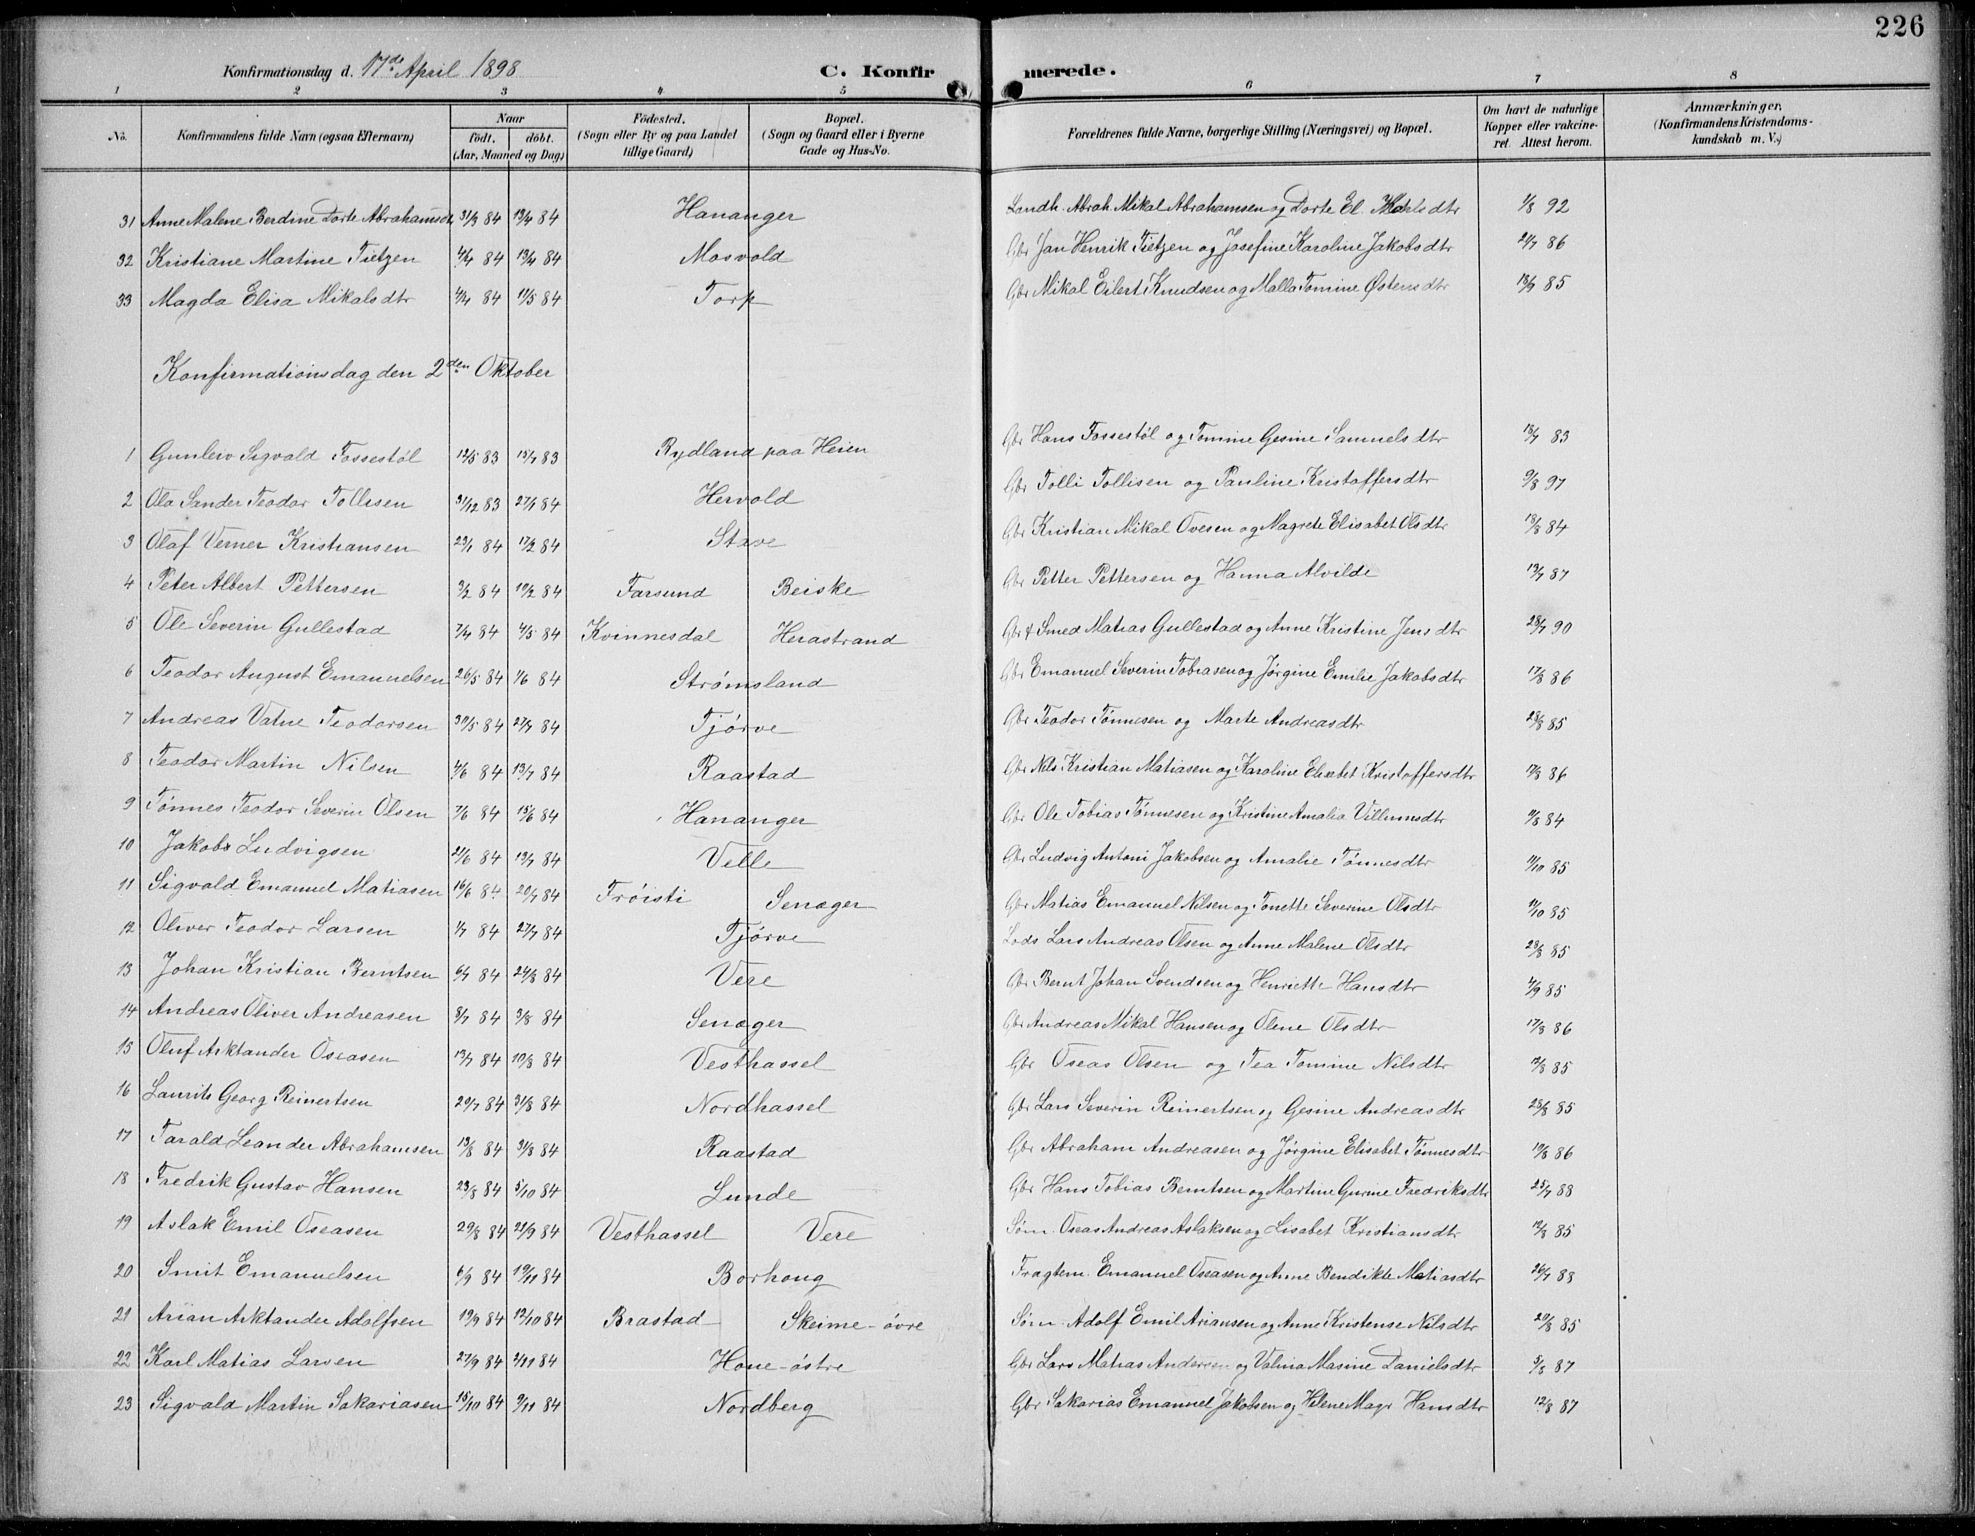 226
Konfirmationsdag d. 17de April 1898 C. Konfirmerede.
1 2 3 4 5 6 7 8
No. Konfirmandens fulde Navn (ogsaa Efternavn) Naar født. døbt. (Aar, Maaned og Dag) Födested. (Sogn eller By og paa Landet tillige Gaard) Bopæl. (Sogn og Gaard eller i Byerne Gade og Hus-No. Forældrenes fulde Navne, borgerlige Stilling (Næringsvei) og Bopæl. Om havt de naturlige Kopper eller vakcineret. Attest herom. Anmærkninger. (Konfirmandens Kristendomskundskab m. V.)
31 Anne Malene Berdine Dorte Abrahamsdtr 31/3 84 13/4 84 Hananger Landh. Abrah. Mikal Abrahamsen og Dorte El. dtr 1/8 92
32 Kristiane Martine Tietzen 4/4 84 13/4 84 Mosvold Gbr Jan Henrik Tietzen og Josefine Karoline Jakobsdtr 86
33 Magda Elisa Mikalsdtr 84 11/5 84 Torp Gbr Mikal Eilert Knudsen og Malla Tomine Østensdtr 85
Konfirmationsdag den 2den Oktober
1 Gunlev Sigvald Fossestøl 12/5 83 15/7 83 Rydland paa Heien Gbr Hans Fossestøl og Tomine Gesine Samuelsdtr 83
2 Ola Sander Teodor Tollisen 31/12 83 27/1 84 Hervold Gbr Tolli Tollisen og Pauline Kristoffersdtr 9/8 97
3 Olaf Verner Kristiansen 23/1 84 17/2 84 Stave Gbr Kristian Mikal Ovesen og Magrete Elisabet Olsdtr 84
4 Peter Albert Pettersen 3/2 84 10/2 84 Farsund Beiske Gbr Petter Pettersen og Hanna Alvilde 87
5 Ole Severin Gullestad 7/4 84 4/5 84 Kvinnesdal Herastrand Gbr & Smed Matias Gullestad og Anne Kristine Jensdtr 28/7 90
6 Teodor August Emanuelsen 26/5 84 1/6 84 Strømsland Gbr Emanuel Severin Tobiasen og Jørgine Emilie Jakobsdtr 17/8 86
7 Andreas Vatne Teodorsen 30/5 84 27/7 84 Tjørve Gbr Teodor Tønnesen og Marte Andreasdtr 23/8 85
8 Teodor Martin Nilsen 4/6 84 13/7 84 Raastad Gbr Nils Kristian Matiasen og Karoline Elisebet Kristoffersdtr 17/8 86
9 Tønnes Teodor Severin Olsen 7/6 84 15/6 84 Hananger Gbr Ole Tobias Tønnesen og Kristine Amalia Villumsdtr 84
10 Jakob Ludvigsen 21/6 84 13/7 84 Velle Gbr Ludvig Antoni Jakobsen og Amalie Tønnesdtr 11/10 85
11 Sigvald Emanuel Matiasen 16/6 84 20/7 84 Frøisti Senæger Gbr Matias Emanuel Nilsen og Tonette Severine Olsdtr 11/10 85
12 Oliver Teodor Larsen 1/7 84 27/7 84 Tjørve Lods Lars Andreas Olsen og Anne Malene Olsdtr 23/8 85
13 Johan Kristian Berntsen 6/7 84 24/8 84 Vere Gbr Bernt Johan Svendsen og Henriette Hansdtr 4/9 85
14 Andreas Oliver Andreasen 8/7 84 3/8 84 Senæger Gbr Andreas Mikal Hansen og Olene Olsdtr 17/8 86
15 Oluf Arktander Oseasen 13/7 84 10/8 84 Vesthassel Gbr Oseas Olsen og Tea Tomine Nilsdtr 85
16 Laurits Georg Reinertsen 29/7 84 31/8 84 Nordhassel Gbr Lars Severin Reinertsen og Gesine Andreasdtr 23/8 85
17 Tarald Leander Abrahamsen 13/8 84 31/8 84 Raastad Gbr Abraham Andreasen og Jørgine Elisabet Tønnesdtr 86
18 Fredrik Gustav Hansen 23/8 84 5/10 84 Lunde Gbr Hans Tobias Berntsen og Martine Gurine Fredriksdtr 25/7 88
19 Aslak Emil Oseasen 29/8 84 21/9 84 Vesthassel Vere Søm. Oseas Andreas Aslaksen og Lisabet Kristiansdtr 85
20 Smit Emanuelsen 6/9 84 19/11 84 Borhoug Fragtem. Emanuel Oseasen og Anne Bendikte Matiasdtr 26/7 88
21 Arian Arktander Adolfsen 19/9 84 12/10 84 Brastad Skeime-øvre Søm. Adolf Emil Ariansen og Anne Kristense Nilsdtr 85
22 Karl Matias Larsen 27/9 84 2/11 84 Houe-østre Gbr Lars Matias Andersen og Valina Masine Danielsdtr 5/8 87
23 Sigvald Martin Sakariasen 15/10 84 9/11 84 Nordberg Gbr Sakarias Emanuel Jakobsen og Helene Magr Hansdtr 12/8 87